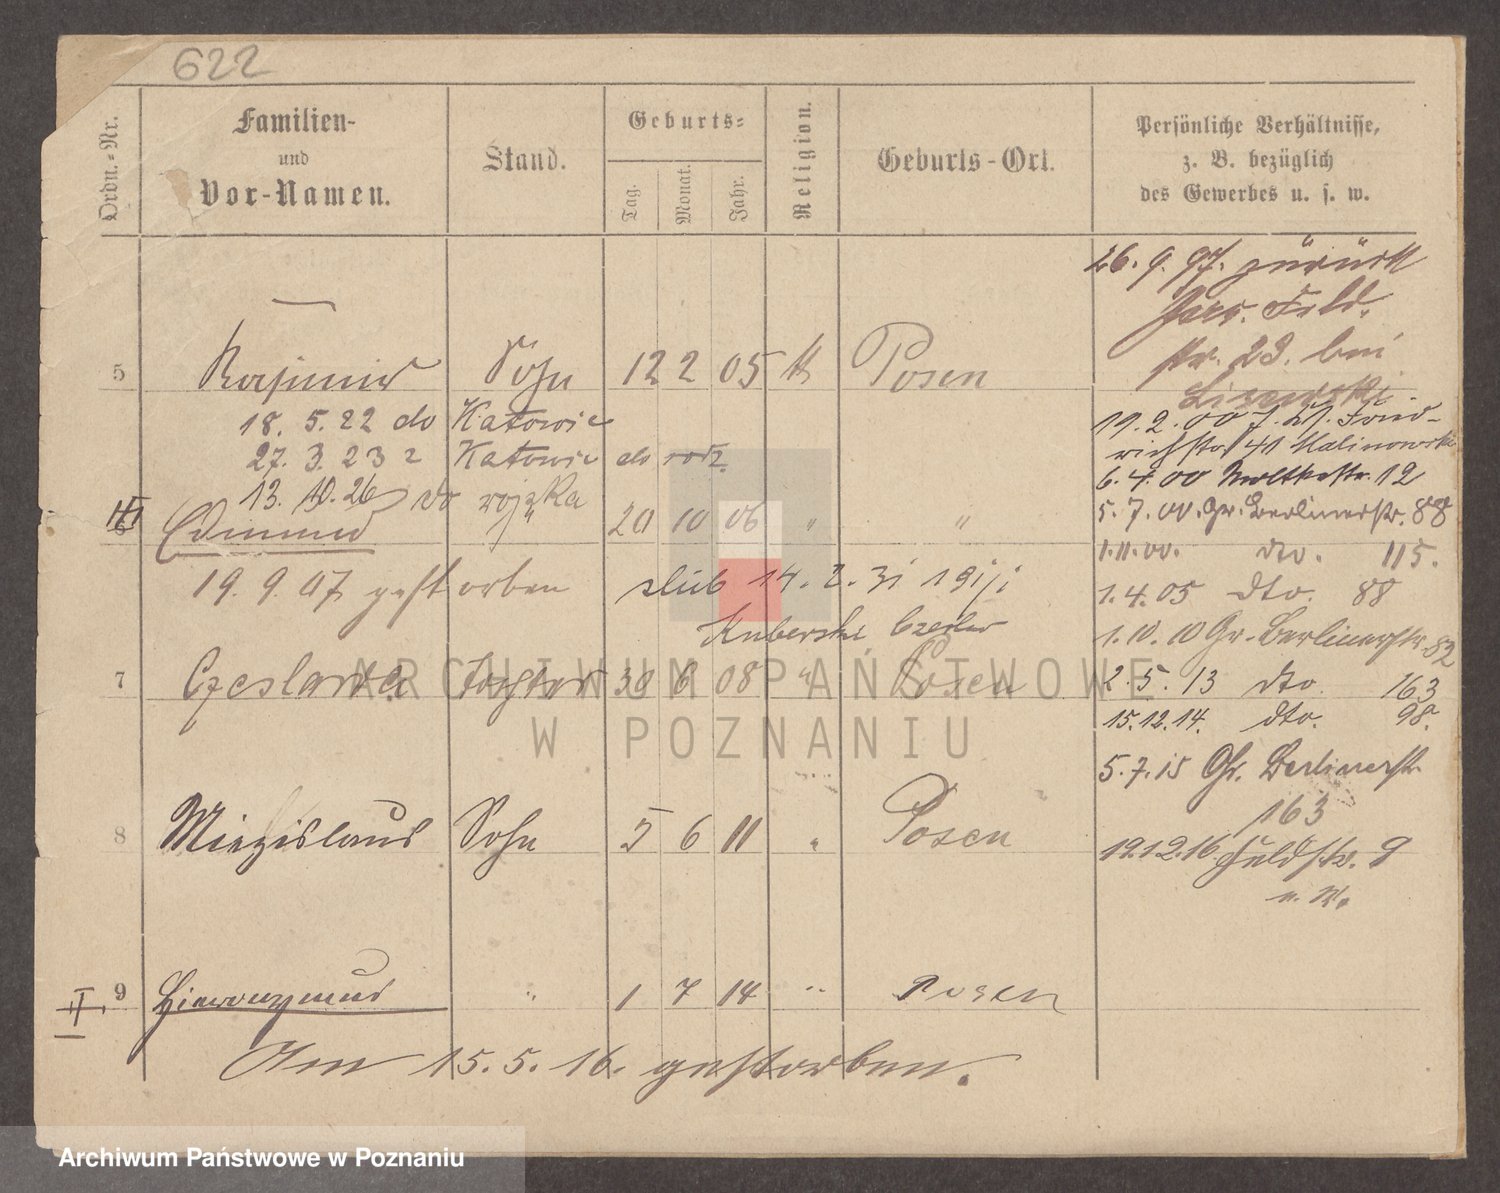 622
Ordn.-Nr.
Familien-
und
Vor-Namen.
Stand.
Geburts-
Tag.
Monat.
Jahr.
Religion.
Geburts-Ort.
Persönliche Verhältnisse,
z. B. bezüglich
des Gewerbes u. s. w.
26. 9. 97. zurück
Feld.
str. 23. bei
5 Kasimir Sohn 12 2 05 k Posen
18. 5. 22 do Katowic
27. 3. 23 z Katowic do rodz.
13. 10. 26 do wojska
6 Edmund " 20 10 06 " "
19. 9. 07 gestorben
ślub 14. 2. 31
Kuberski Czesław
7 Czeslawa Tochter 30 6 08 " Posen
8 Miezislaus Sohn 5 6 11 " Posen
I 9 Hieronymus " 1 7 14 " Posen
Am 15. 5. 16. gestorben.
19. 2. 00 Fried-
richstr 41 Malinowski
6. 4. 00 Moltkestr. 12
5. 7. 00. Gr. Berlinerstr. 88
1. 11. 00. dto. 115.
1. 4. 05 dto. 88
1. 10. 10 Gr. Berlinerstr. 82
2. 5. 13 dto. 163
15. 12. 14. dto. 98.
5. 7. 15 Gr. Berlinerstr.
163
19.12.16 Feldstr. 9
ARCHIWUM PAŃSTWOWE
W POZNANIU
Archiwum Państwowe w Poznaniu